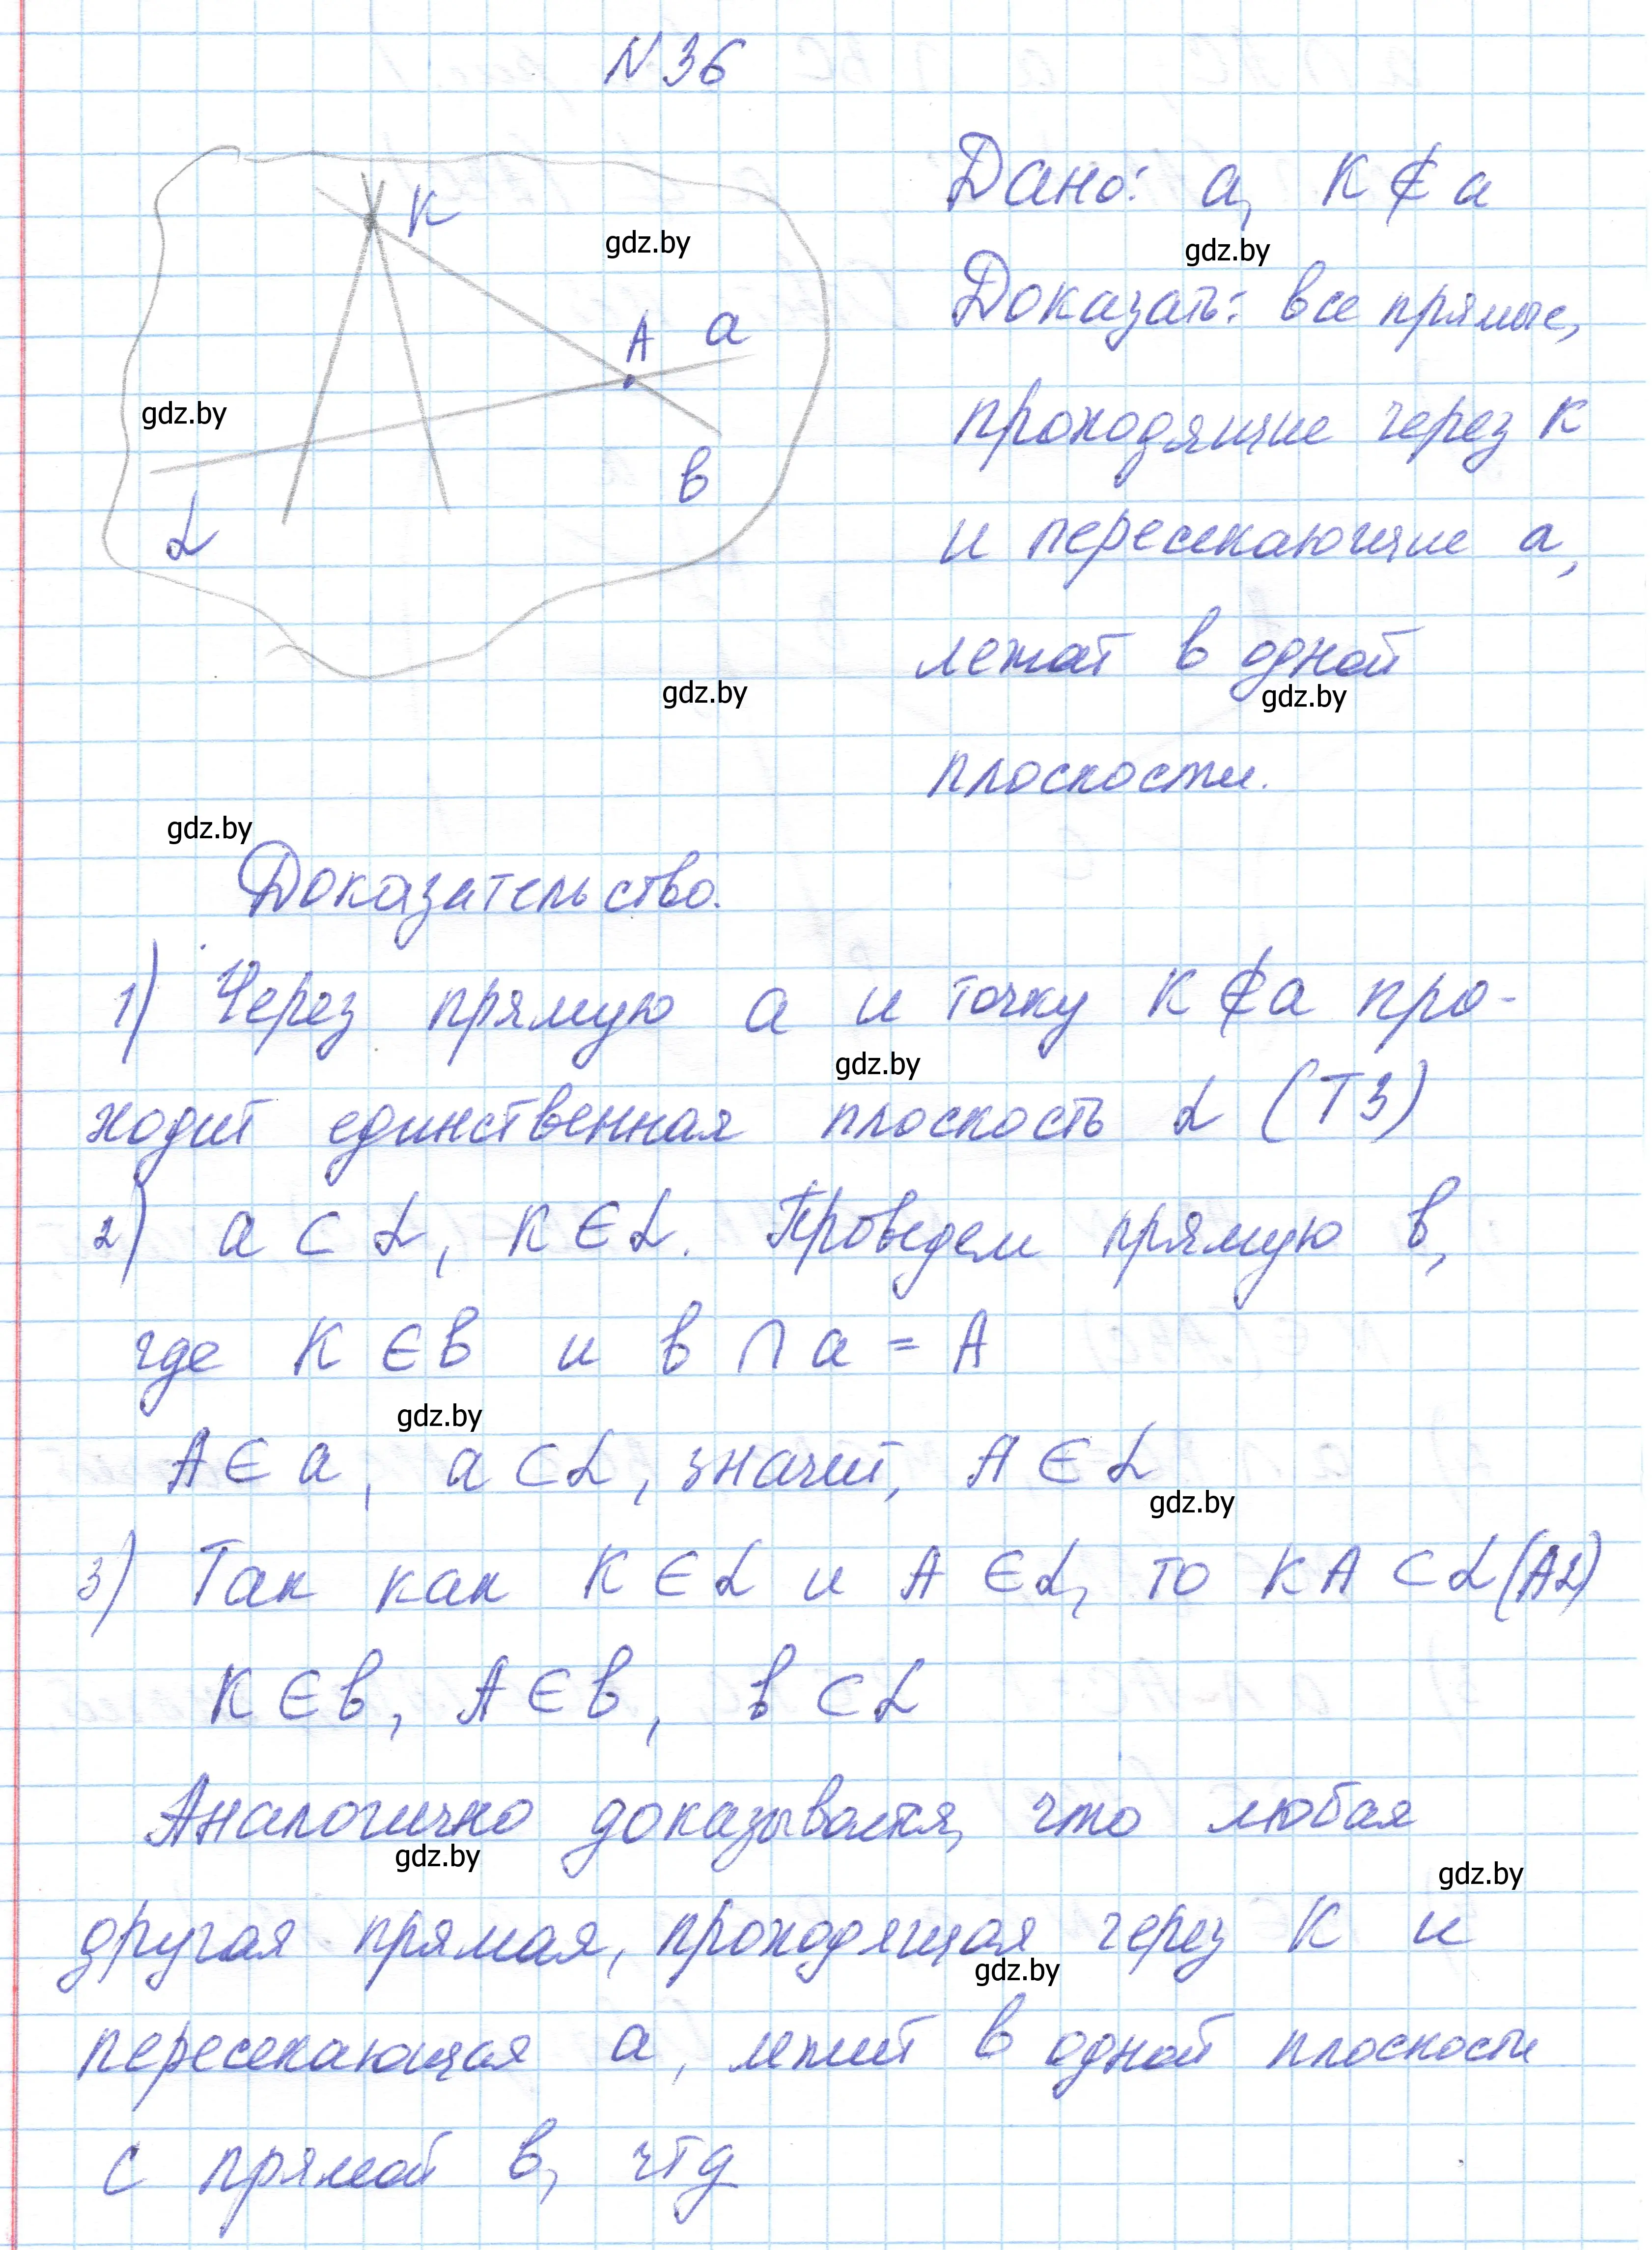 N 36
K
A a
в
α
Дано: a, K ∉ a
Доказать: все прямые,
проходящие через K
и пересекающие a,
лежат в одной
плоскости.
Доказательство.
1) Через прямую a и точку K ∉ a про-
ходит единственная плоскость α (Т3)
2) a ⊂ α, K ∈ α. Проведем прямую в,
где K ∈ в и в ∩ a = A
A ∈ a, a ⊂ α, значит, A ∈ α
3) Так как K ∈ α и A ∈ α, то KA ⊂ α (A2)
K ∈ в, A ∈ в, в ⊂ α
Аналогично доказывается, что любая
другая прямая, проходящая через K и
пересекающая a, лежит в одной плоскости
с прямой в, чтд
gdz.by
gdz.by
gdz.by
gdz.by
gdz.by
gdz.by
gdz.by
gdz.by
gdz.by
gdz.by
gdz.by
gdz.by